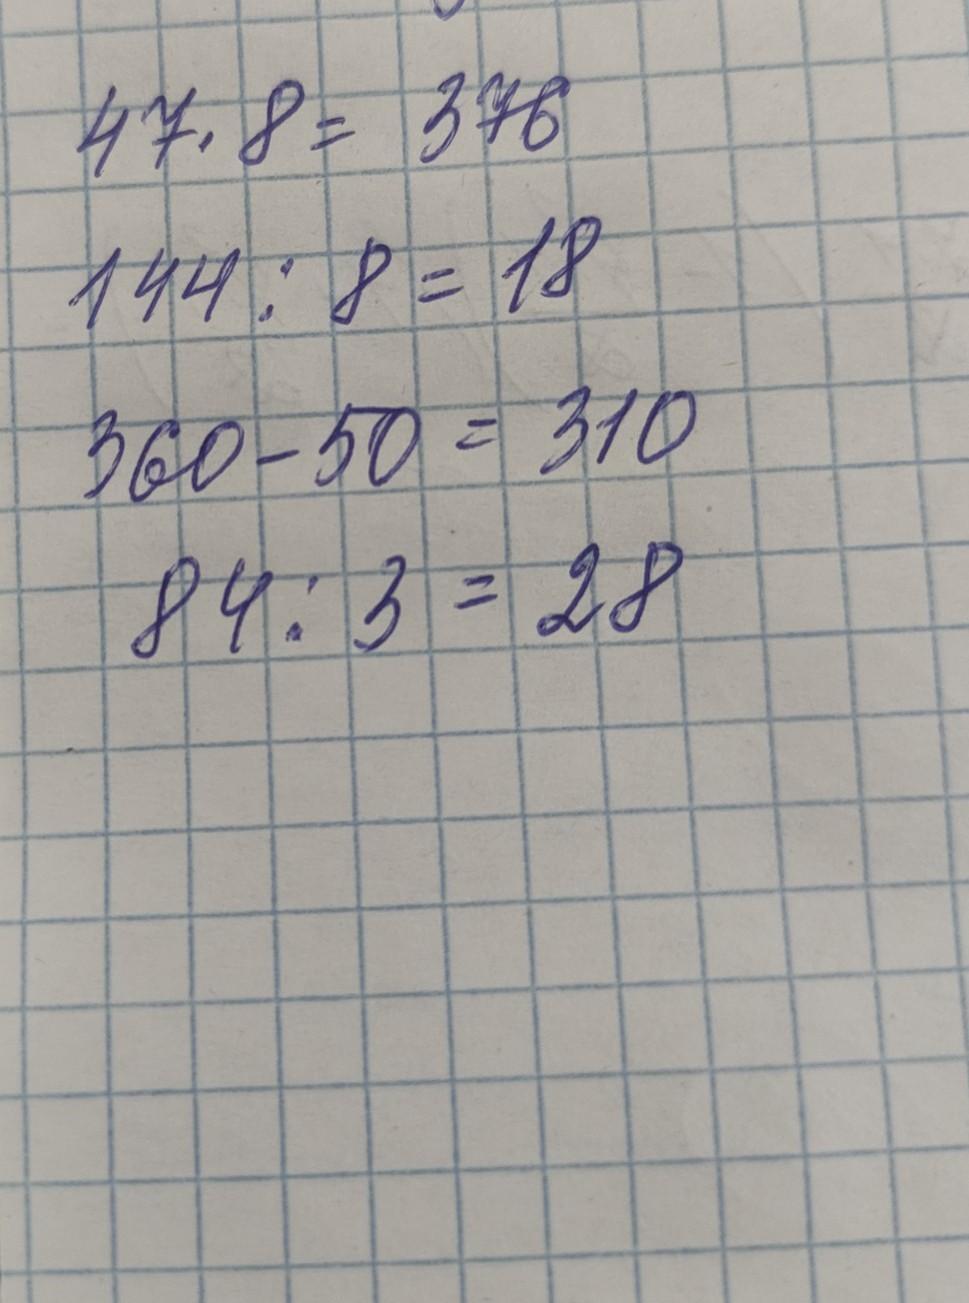 47·8= 376
144:8=18
360-50=310
84:3=28